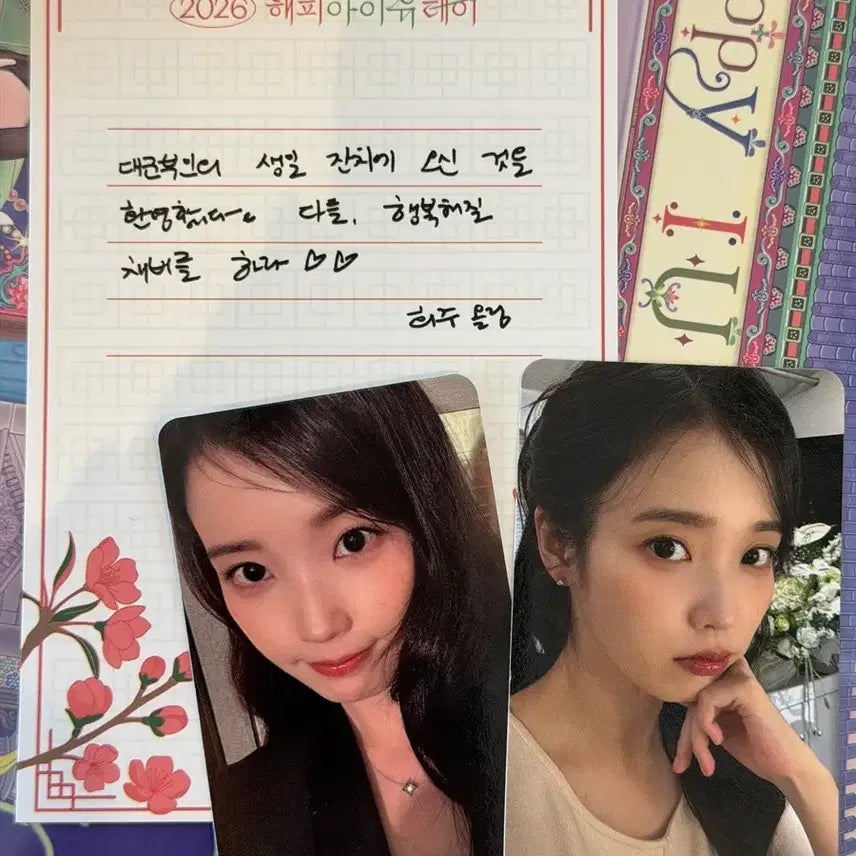 2026 해피아이유데이
대군부인의 생일 잔치에 오신 것을
환영합니다~ 다들, 행복해질
채비를 하라 ♡♡
희주 올림
ppy
IU